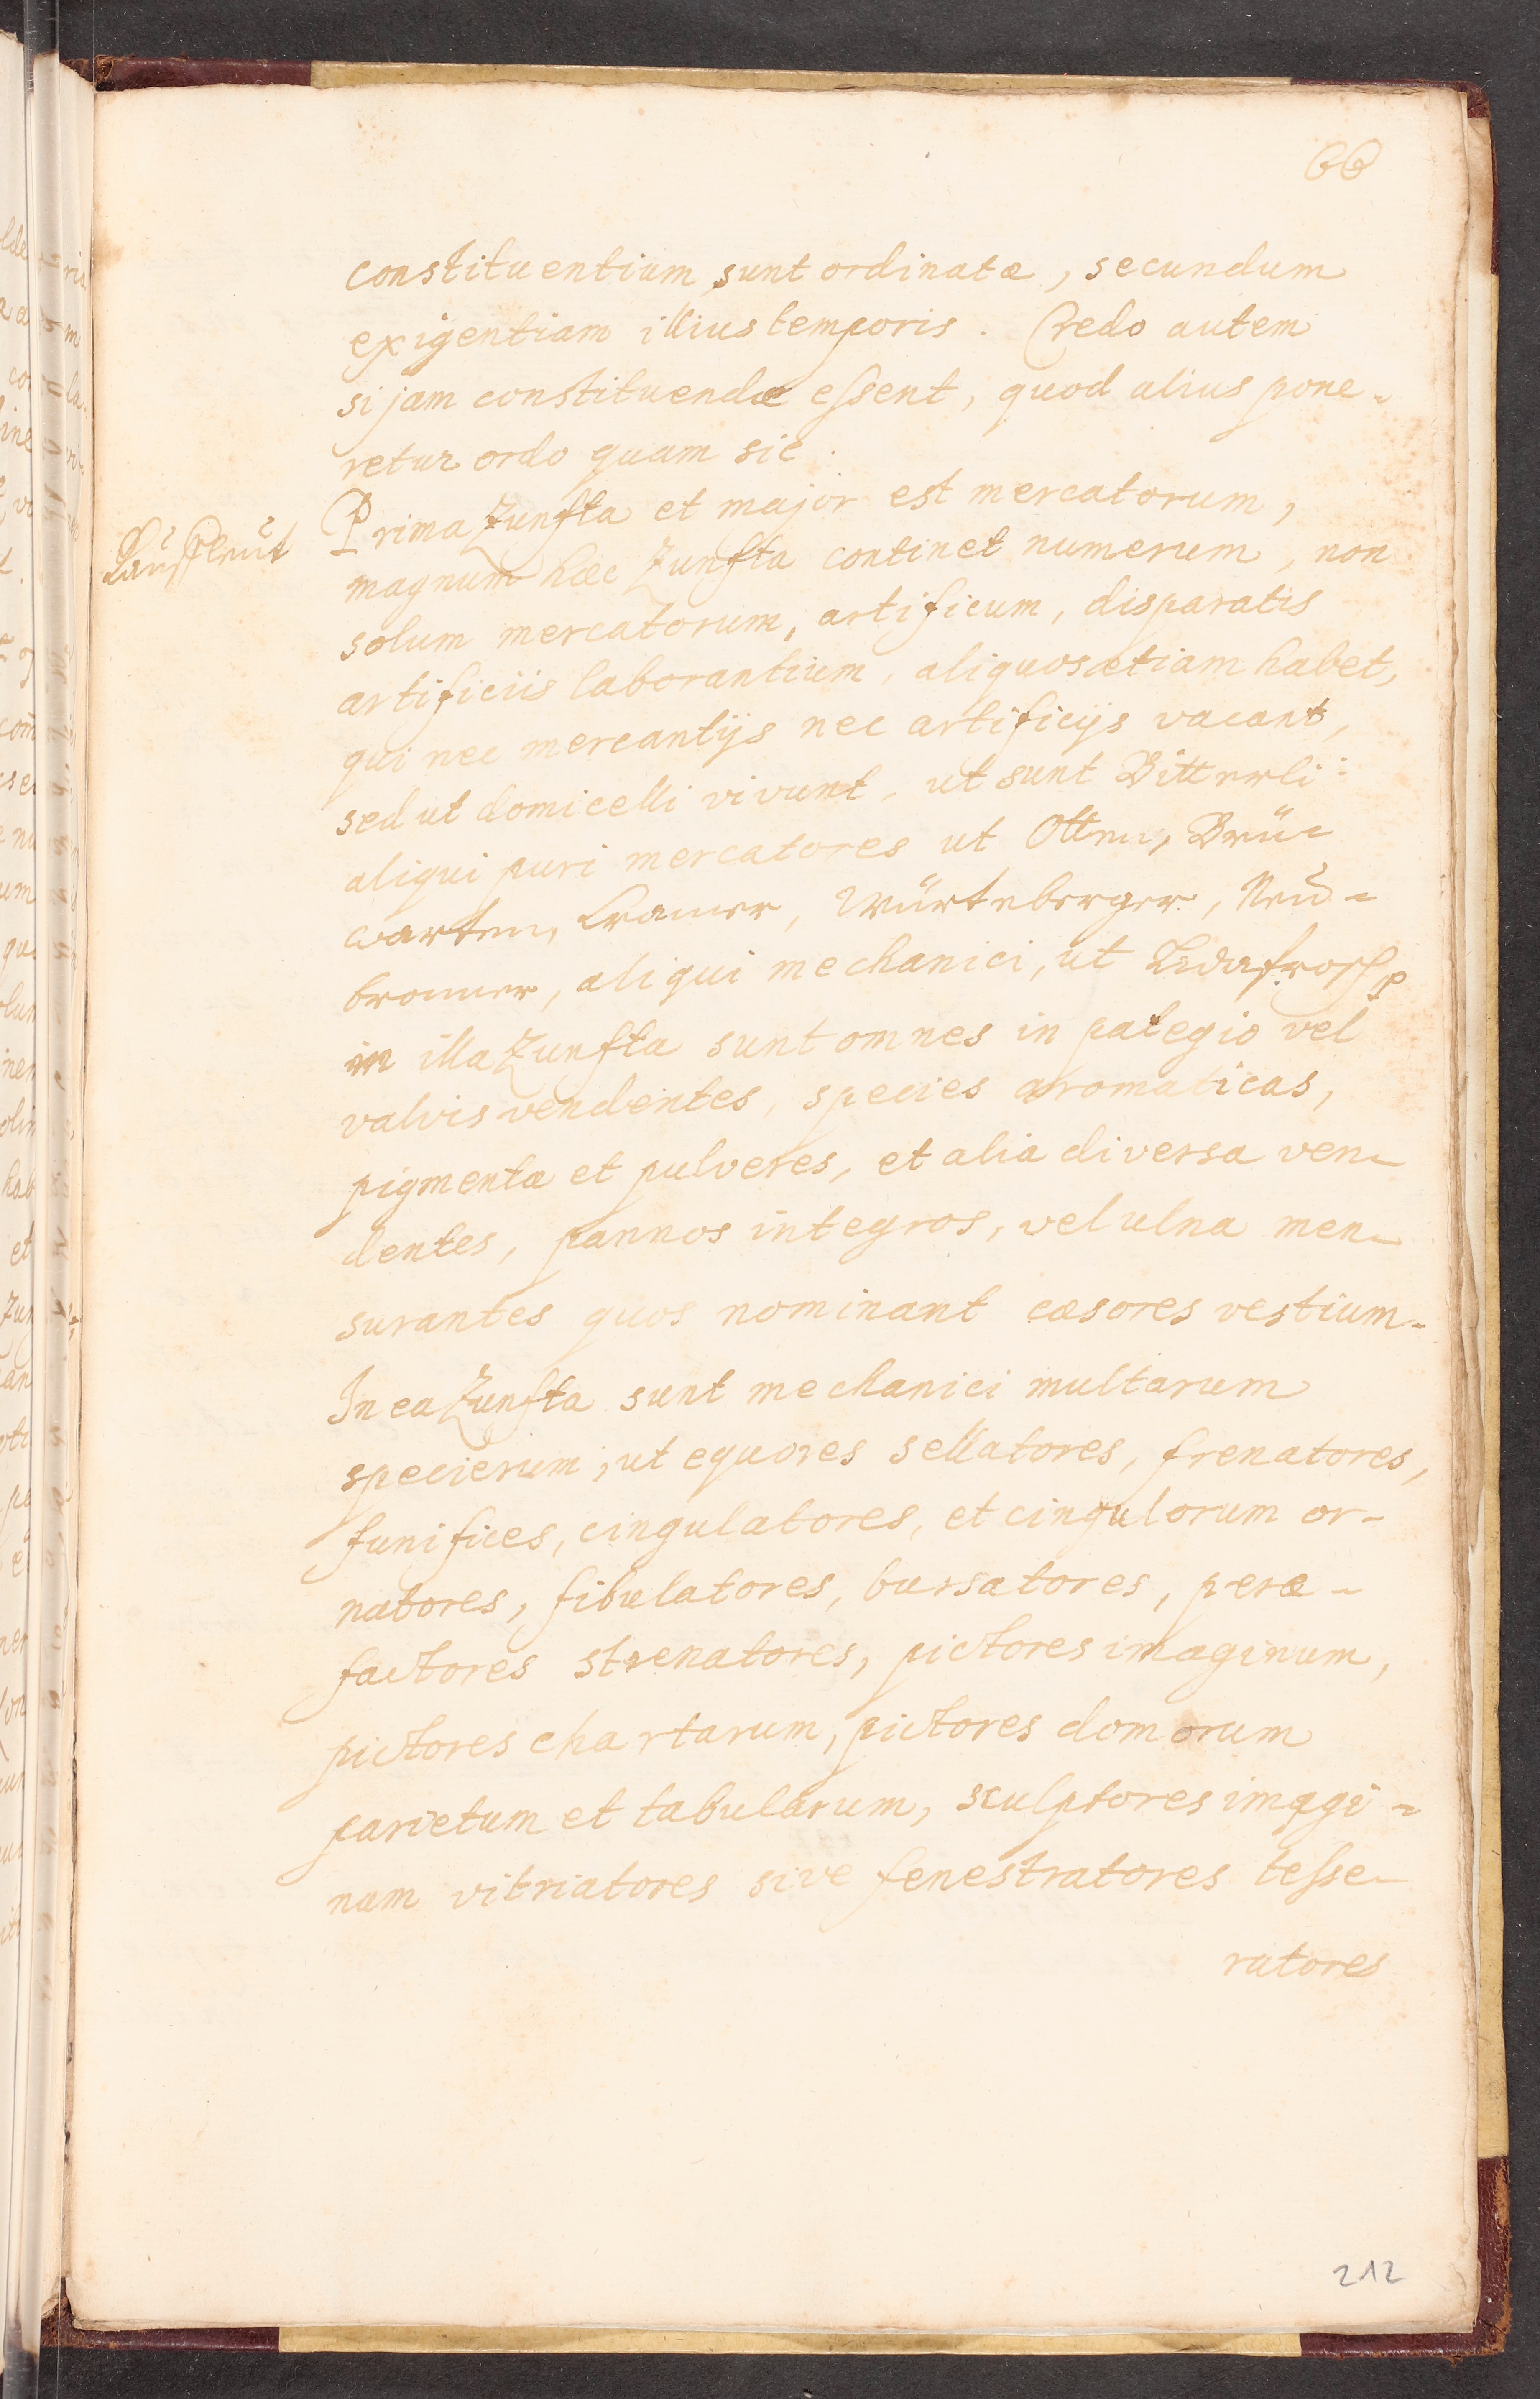 66
constituentium sunt ordinatæ, secundum
exigentiam illius temporis. Credo autem
si jam constituendæ essent, quod alius pone-
retur ordo quam sic.
Kaufleut
Prima Zunfta et major est mercatorum,
magnum hæc Zunfta continet numerum, non
solum mercatorum, artificum, disparatis
artificiis laborantium, aliquos etiam habet,
qui nec mercantijs nec artificijs vacant,
sed ut domicelli vivunt, ut sunt Bitterli:
aliqui puri mercatores ut Otten, Brü-
warten, Cramer, Würteberger, Neu-
bronner, aliqui mechanici, ut
in illa Zunfta sunt omnes in pategio vel
valvis vendentes, species aromaticas,
pigmenta et pulveres, et alia diversa ven-
dentes, pannos integros, vel ulna men-
surantes quos nominant cæsores vestium.
In ea Zunfta sunt mechanici multarum
specierum, ut equores sellatores, frenatores,
funifices, cingulatores, et cingulorum or-
natores, fibulatores, bursatores, peræ-
factores strenatores, pictores imaginum,
pictores chartarum, pictores domorum
parietum et tabularum, sculptores imagi-
num vitriatores sive fenestratores tesse-
ratores
212